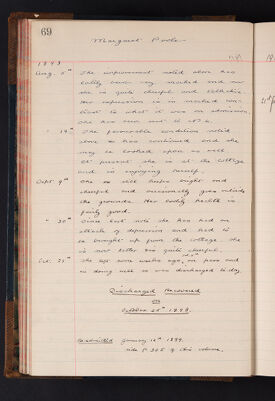 69
Margaret Poole
1898
Aug. 5th The improvement noted above has
lately been very marked and now
she is quite cheerful and talkative.
Her expression is in marked con-
trast to what it was on admission.
She has been out to
" 19th The favourable condition noted
above is has continued and she
may be looked upon as well.
At present she is at the Cottage
and is enjoying herself.
Sept 9th She is still keeps bright and
cheerful and occasionally goes outside
the grounds. Her bodily health is
fairly good.
" 30th Since last note she has had an
attack of depression and had to
be brought up from the cottage she
is now better & is quite cheerful.
Oct. 25th She left some weeks ago on pass and
is doing well & was discharged to day.
Discharged Recovered
October 25th 1898.
Readmitted January 12th 1899.
vide P 305 of this volume.